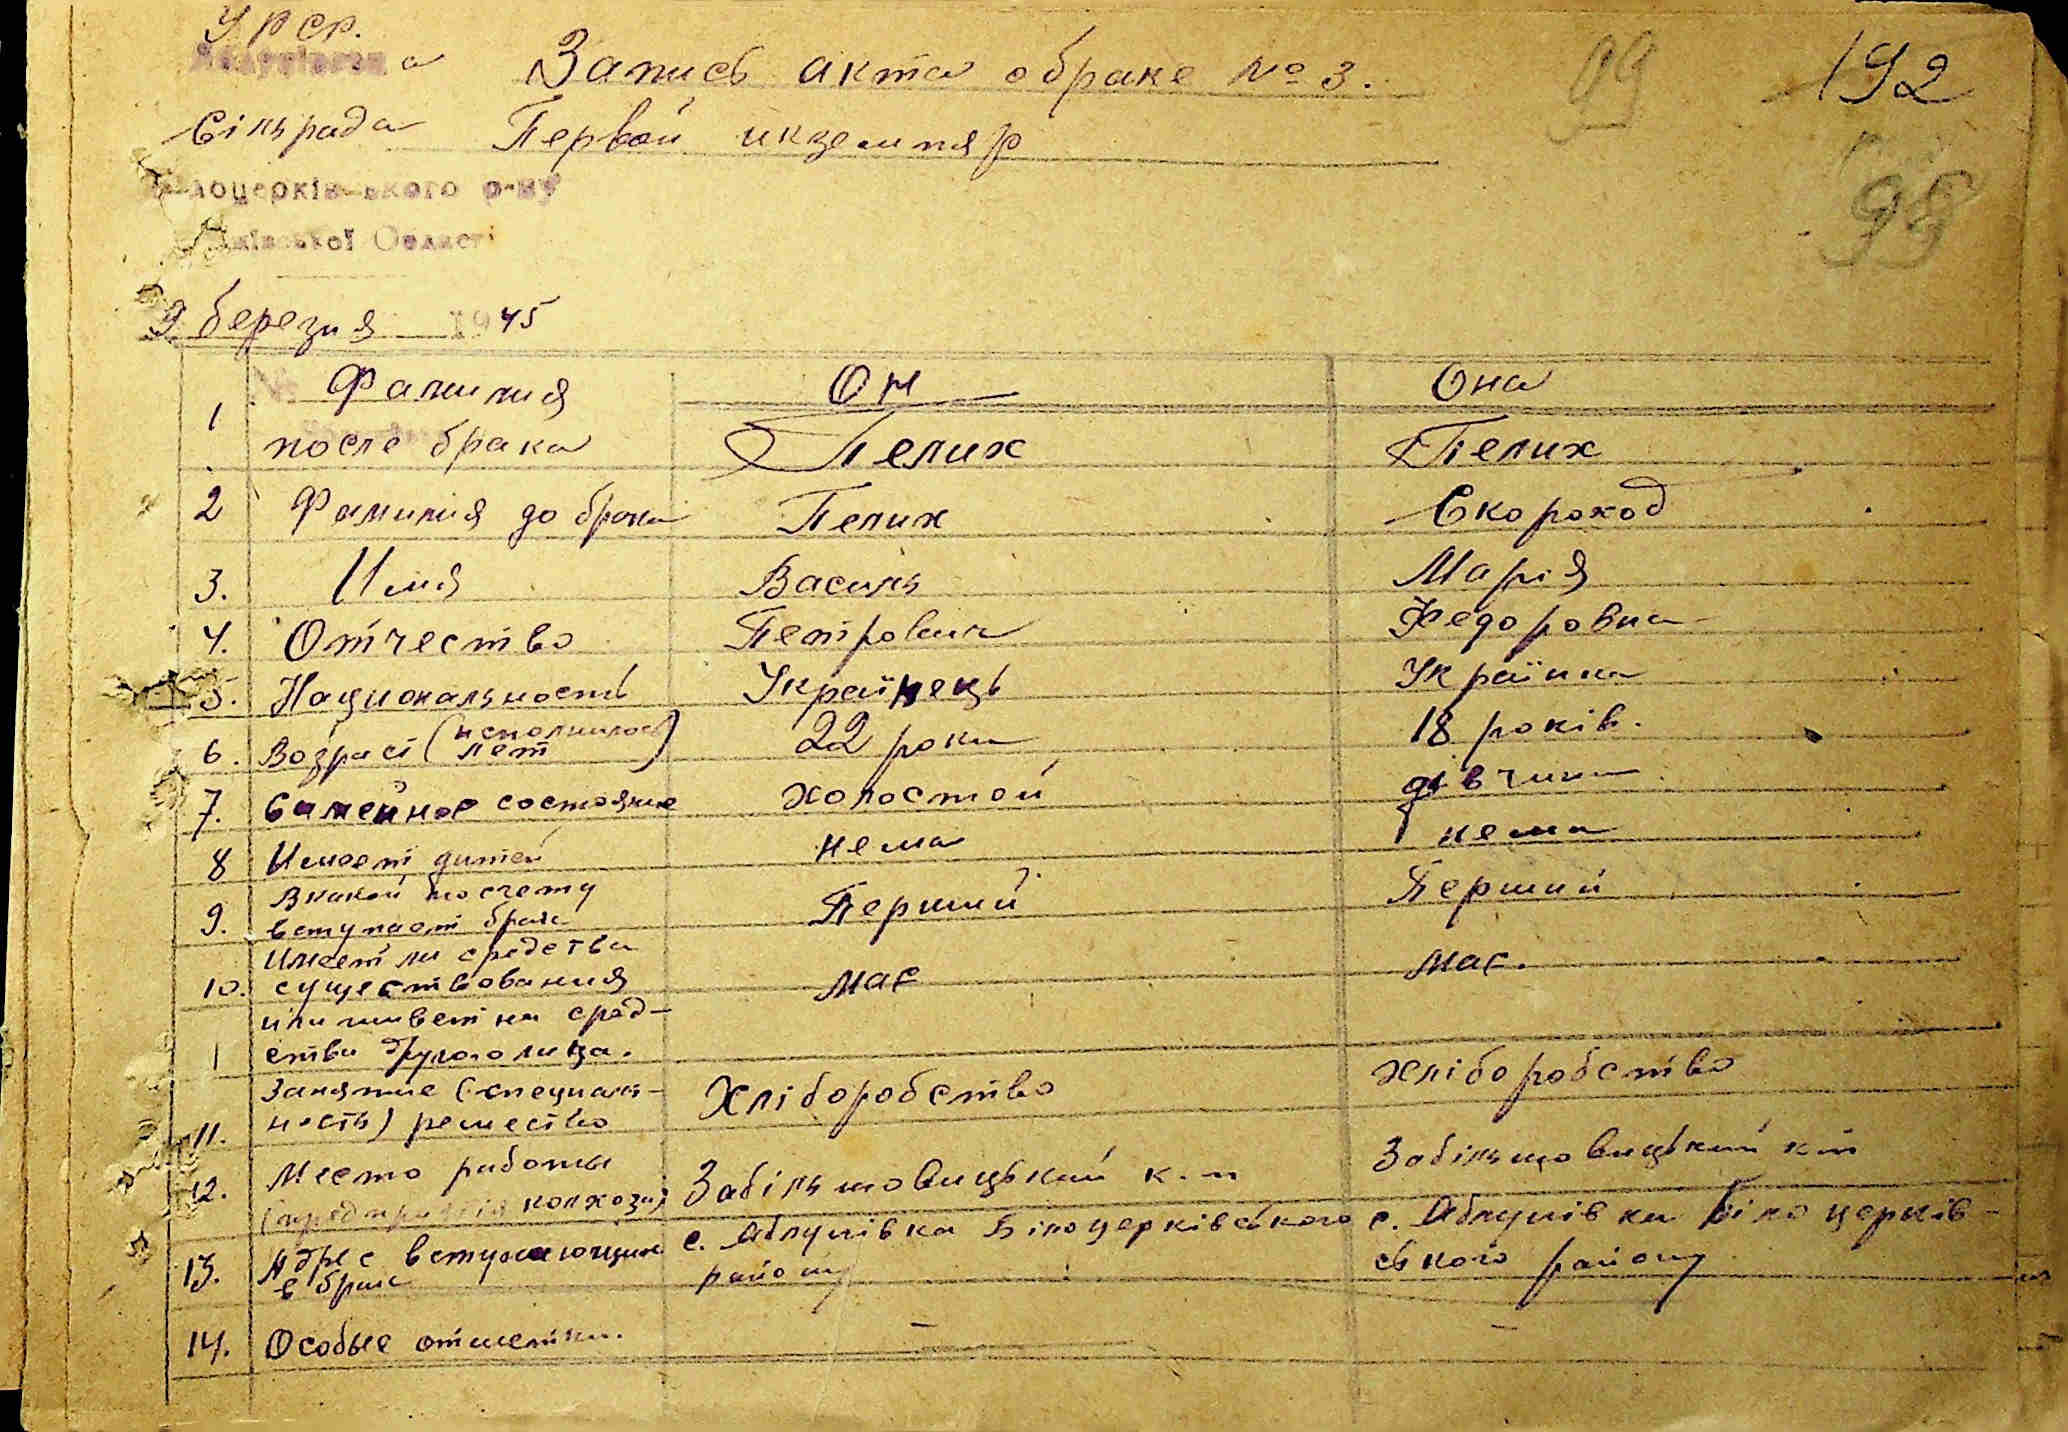 УРСР.
а Запись акта о браке № 3. 99 192
Сільрада Первой икземпляр
лоцерків-ського р-ну 95
київської Області
9 березня 1945
Фамилия Он Она
1 после брака Пелих Пелих
2 Фамилия до брака Пелих Скороход
3. Имя Василь Марія
4. Отчество Петрович Федоровна
5. Национальность Українець Українка
6. Возраст (исполнилось лет) 22 роки 18 років.
7. Самейное состояние холостой дівчина
8 Имеет дитей нема нема
9. В какой по счету Перший Перший
вступает брак
Имеет ли средства
10. существования має має.
или живет на сред-
1 ства другого лица.
Занятие (специаль- Хліборобство хліборобство
11. ность) ремество
12. Место работы Забільшовицький к-п Забільшовицький к-п
(предприятия колхоза)
13. Адрес вступающих с. Яблунівка Білоцерківського с. Яблунівка Білоцерків-
в брак району ського району
14. Особые отметки. — —